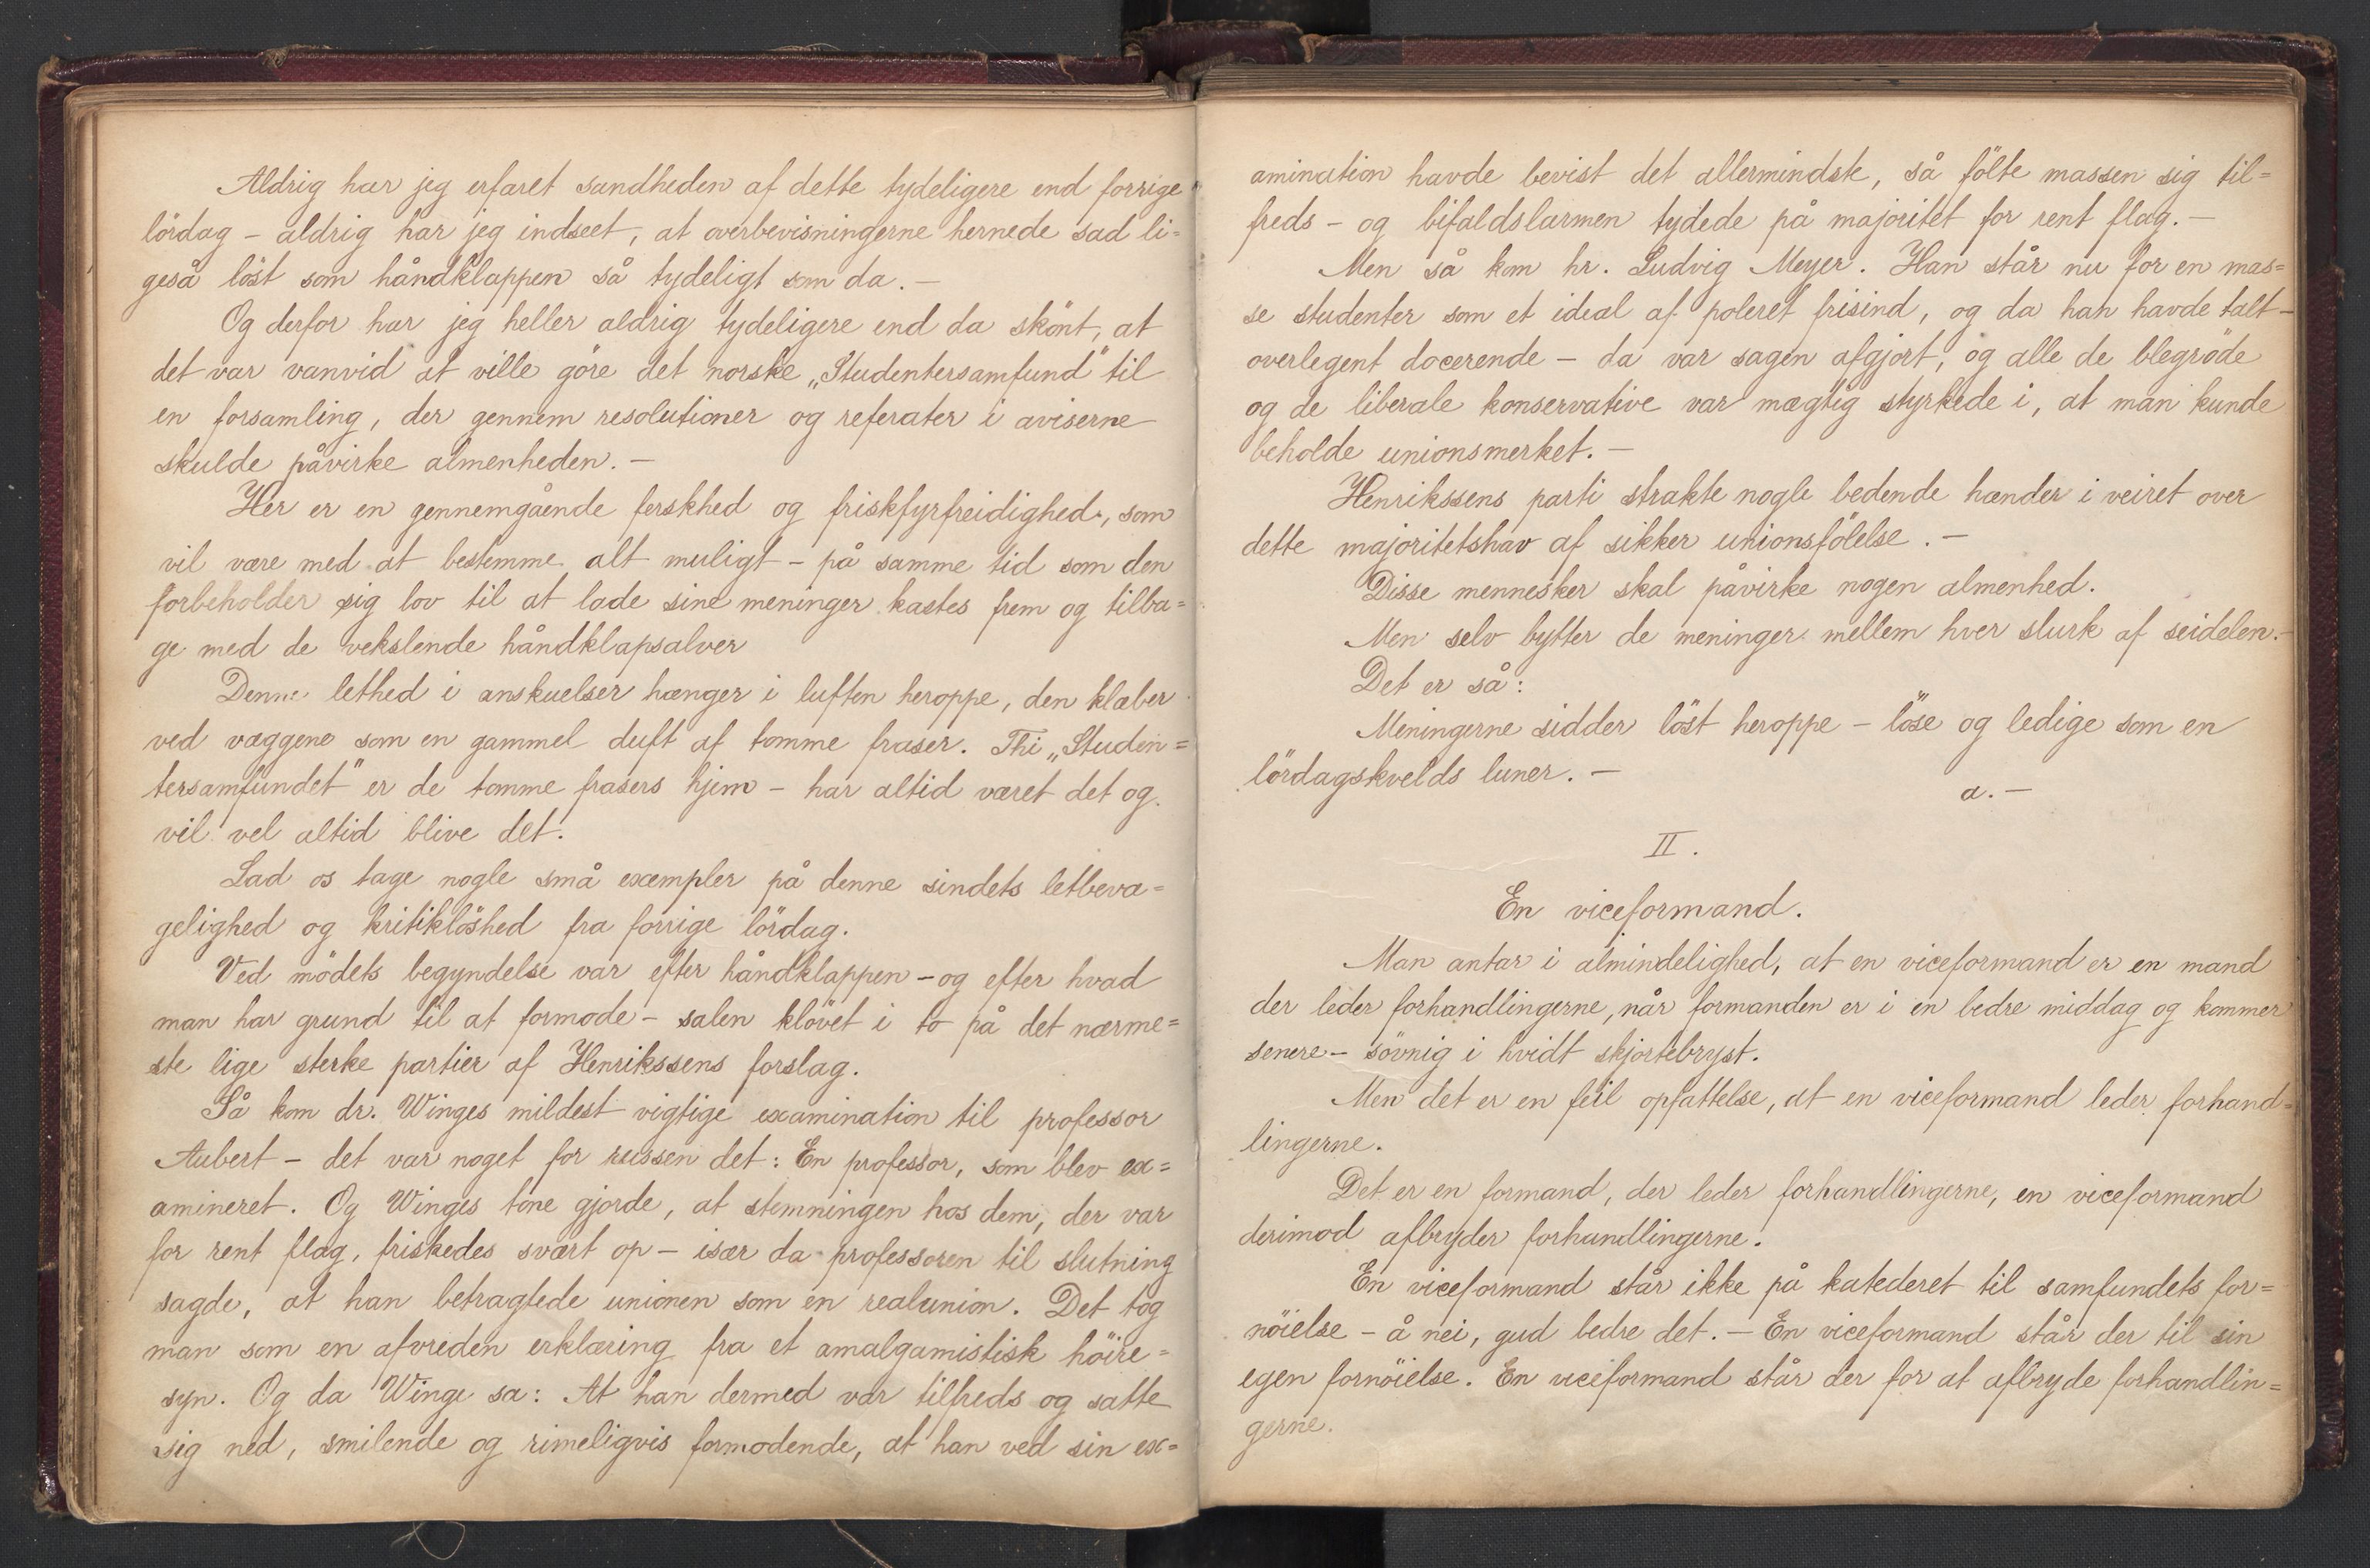 Aldrig har jeg erfaret sandheden af dette tydeligere end forrige
lördag - aldrig har jeg indseet, at overbevisningerne hernede sad li=
geså löst som håndklappen så tydeligt som da. -
Og derfor har jeg heller aldrig tydeligere end da skönt, at
det var vanvid at ville göre det norske „Studentersamfund" til
en forsamling, der gennem resolutioner og referater i aviserne
skulde påvirke almenheden. -
Her er en gennemgående ferskhed og friskfyrfreidighed, som
vil være med at bestemme alt muligt - på samme tid som den
forbeholder sig lov til at lade sine meninger kastes frem og tilba=
ge med de vekslende håndklapsalver
Denne lethed i anskuelser hænger i luften heroppe, den klæber
ved væggene som en gammel duft af tomme fraser. Thi „Studen=
tersamfundet" er de tomme frasers hjem - har altid været det og
vil vel altid blive det.
Lad os tage nogle små exempler på denne sindets letbevæ=
gelighed og kritiklöshed fra forrige lördag.
Ved mödets begyndelse var efter håndklappen - og efter hvad
man har grund til at formode - salen klövet i to på det nærme=
ste lige sterke partier af Henrikssens forslag.
Så kom dr. Winges mildest vigtige examination til professor
Aubert - det var noget for russen det: En professor, som blev ex=
amineret. Og Winges tone gjorde, at stemningen hos dem, der var
for rent flag, friskedes svært op - især da professoren til slutning
sagde, at han betragtede unionen som en realunion. Det tog
man som en afvreden erklæring fra et amalgamistisk höire=
syn. Og da Winge sa: At han dermed var tilfreds og satte
sig ned, smilende og rimeligvis formodende, at han ved sin ex=
amination havde bevist det allermindste, så fölte massen sig til=
freds - og bifaldslarmen tydede på majoritet for rent flag. -
Men så kom hr. Ludvig Meyer. Han står nu for en mas=
se studenter som et ideal af poleret frisind, og da han havde talt -
overlegent docerende - da var sagen afgjort, og alle de blegröde
og de liberale konservative var mægtig styrkede i, at man kunde
beholde unionsmerket. -
Henrikssens parti strakte nogle bedende hænder i veiret over
dette majoritetshav af sikker unionsfölelse. -
Disse mennesker skal påvirke nogen almenhed.
Men selv bytter de meninger mellem hver slurk af seidelen. -
Det er så:
Meningerne sidder löst heroppe - löse og ledige som en
lördagskvelds luner. -
a. -
II.
En viceformand.
Man antar i almindelighed, at en viceformand er en mand
der leder forhandlingerne, når formanden er i en bedre middag og kommer
senere - sövnig i hvidt skjortebryst.
Men det er en feil opfattelse, at en viceformand leder forhand=
lingerne.
Det er en formand, der leder forhandlingerne, en viceformand
derimod afbryder forhandlingerne.
En viceformand står ikke på katederet til samfundets for=
nöielse - å nei, gud bedre det. - En viceformand står der til sin
egen fornöielse. En viceformand står der for at afbryde forhandlin=
gerne.